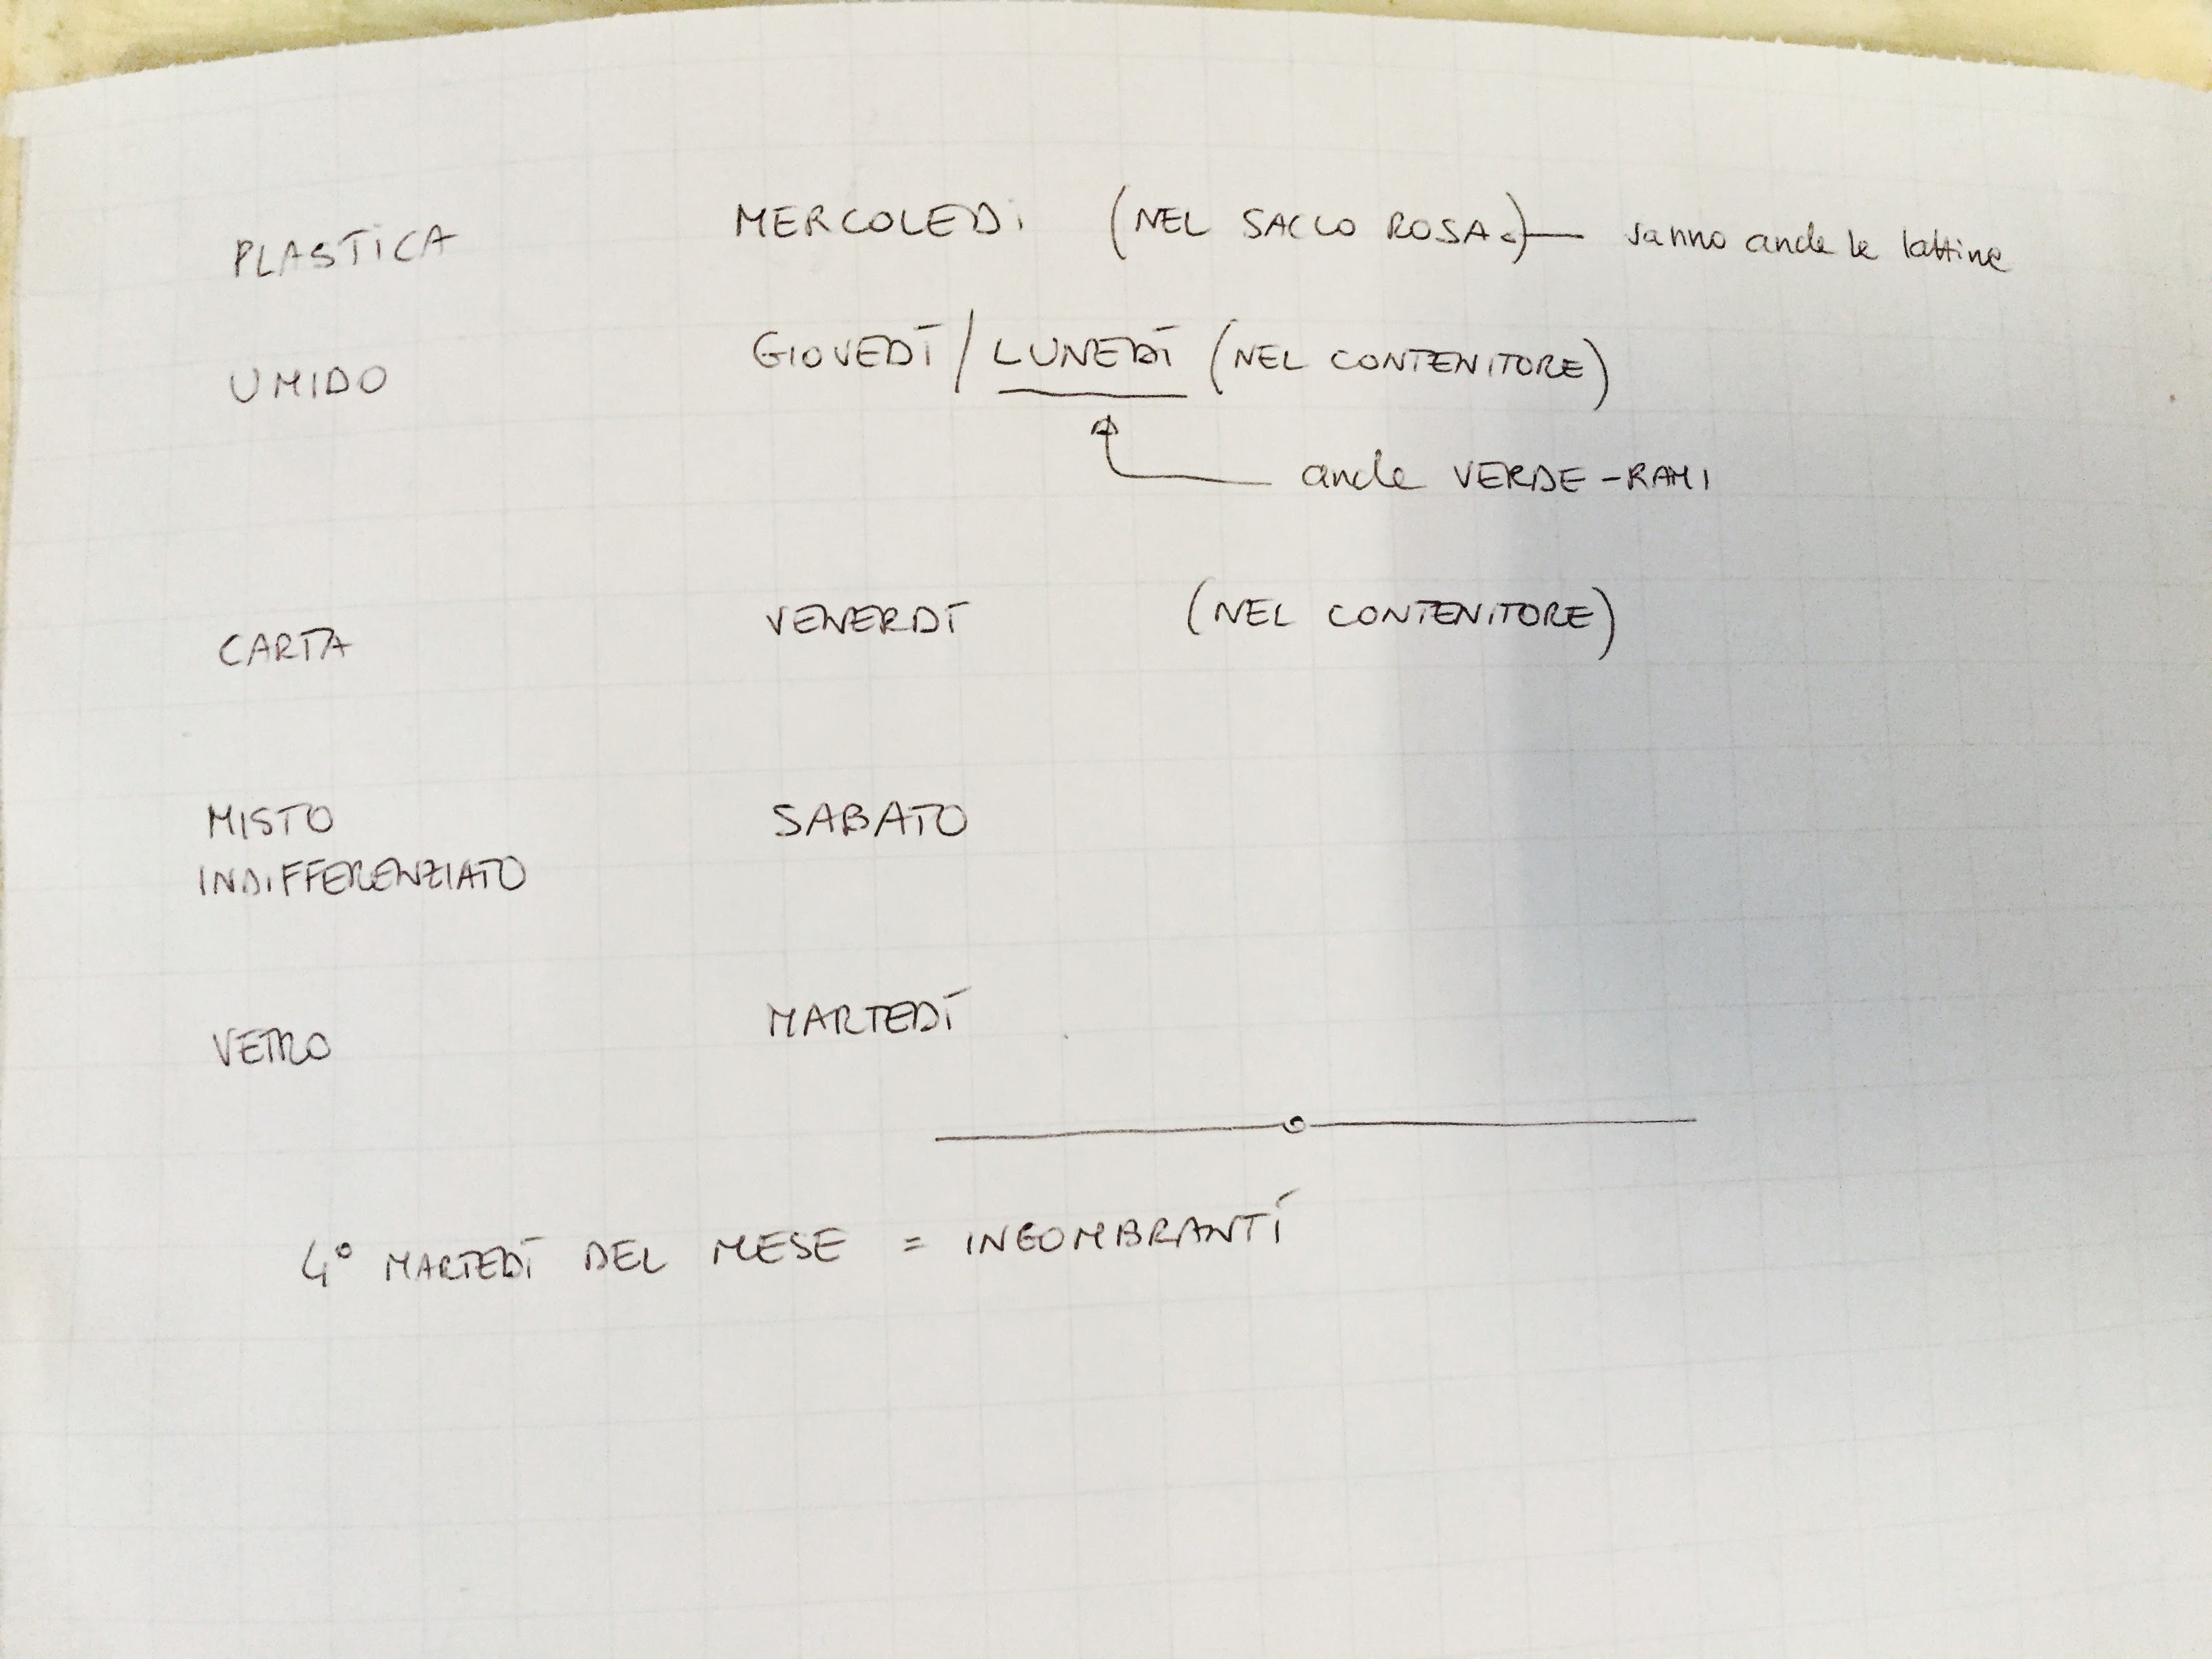 PLASTICA MERCOLEDì (NEL SACCO ROSA) vanno anche le lattine
UMIDO GIOVEDÌ / LUNEDÌ (NEL CONTENITORE)
anche VERDE-RAMI
CARTA VENERDÌ (NEL CONTENITORE)
MISTO SABATO
INDIFFERENZIATO
VETRO MARTEDÌ
4° MARTEDÌ DEL MESE = INGOMBRANTI